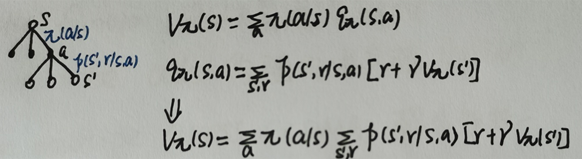 s
π(a/s)
a
p(s',r/s,a)
s'
Vπ(s) = Σₐ π(a/s) qπ(s,a)
qπ(s,a) = Σₛ',ᵣ p(s',r/s,a) [r+γVπ(s')]
⇓
Vπ(s) = Σₐ π(a/s) Σₛ',ᵣ p(s',r/s,a) [r+γVπ(s')]